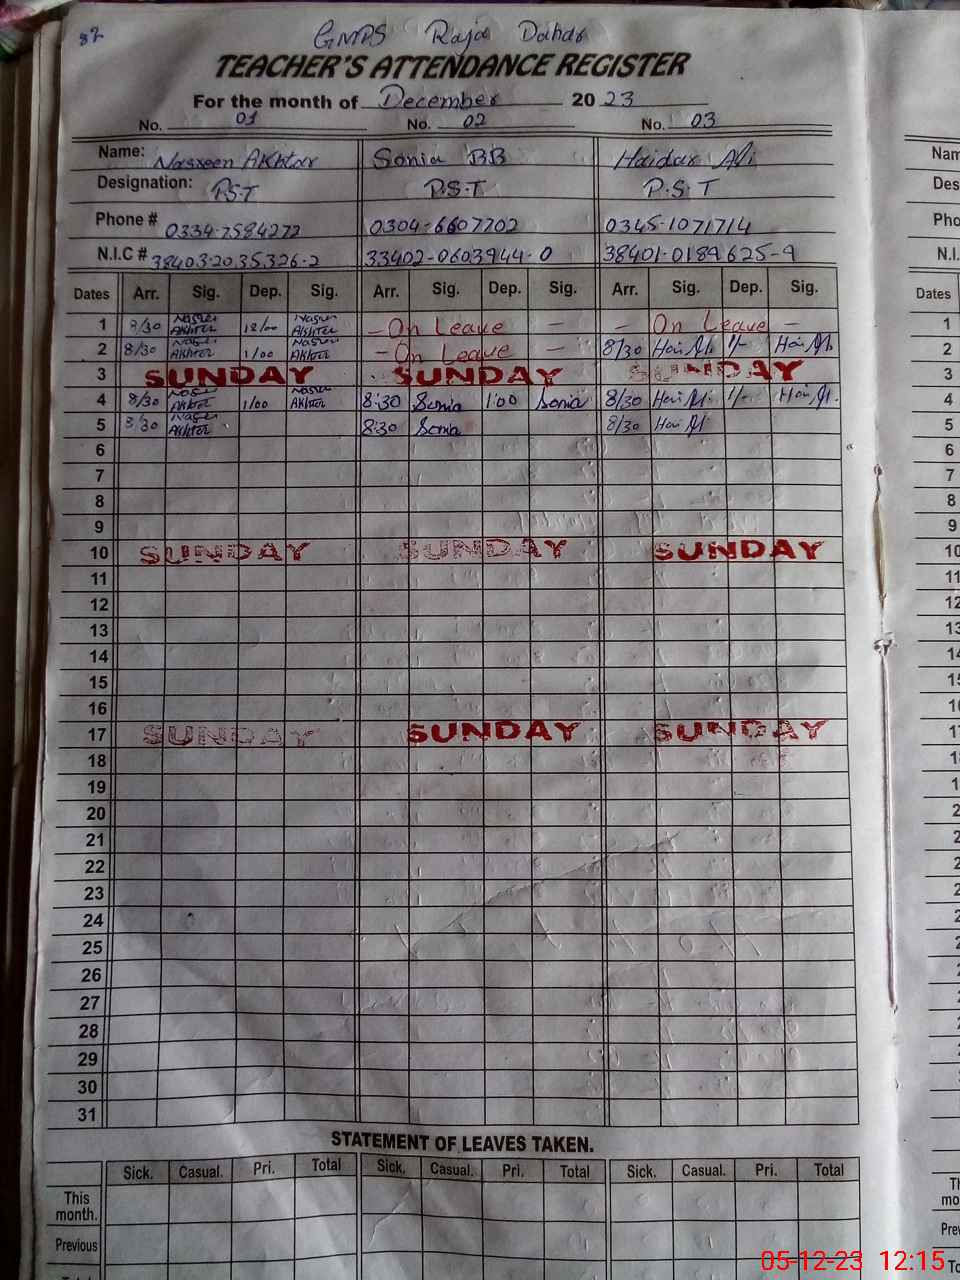 82
GMPS Raja Dahar
TEACHER'S ATTENDANCE REGISTER
For the month of December 2023
No. 01 No. 02 No. 03
Name: Nasreen Akhtar Sonia BB Haidar Ali
Designation: P.S.T P.S.T P.S.T
Phone # 0334-7584272 0304-6607702 0345-1071714
N.I.C # 38403-2035326-2 33402-0603944-0 38401-0189625-9
Dates Arr. Sig. Dep. Sig. Arr. Sig. Dep. Sig. Arr. Sig. Dep. Sig.
1 8/30 Nasreen Akhtar 12/00 Nasreen Akhtar - On Leave - - On Leave -
2 8/30 Nasreen Akhtar 1/00 Nasreen Akhtar - On Leave - 8/30 1/-
3 SUNDAY SUNDAY SUNDAY
4 8/30 Nasreen Akhtar 1/00 Nasreen Akhtar 8:30 Sonia 1:00 Sonia 8/30 1/-
5 8/30 Nasreen Akhtar 8:30 Sonia 8/30
6
7
8
9
10 SUNDAY SUNDAY SUNDAY
11
12
13
14
15
16
17 SUNDAY SUNDAY SUNDAY
18
19
20
21
22
23
24
25
26
27
28
29
30
31
STATEMENT OF LEAVES TAKEN.
Sick. Casual. Pri. Total Sick. Casual. Pri. Total Sick. Casual. Pri. Total
This month.
Previous
05-12-23 12:15